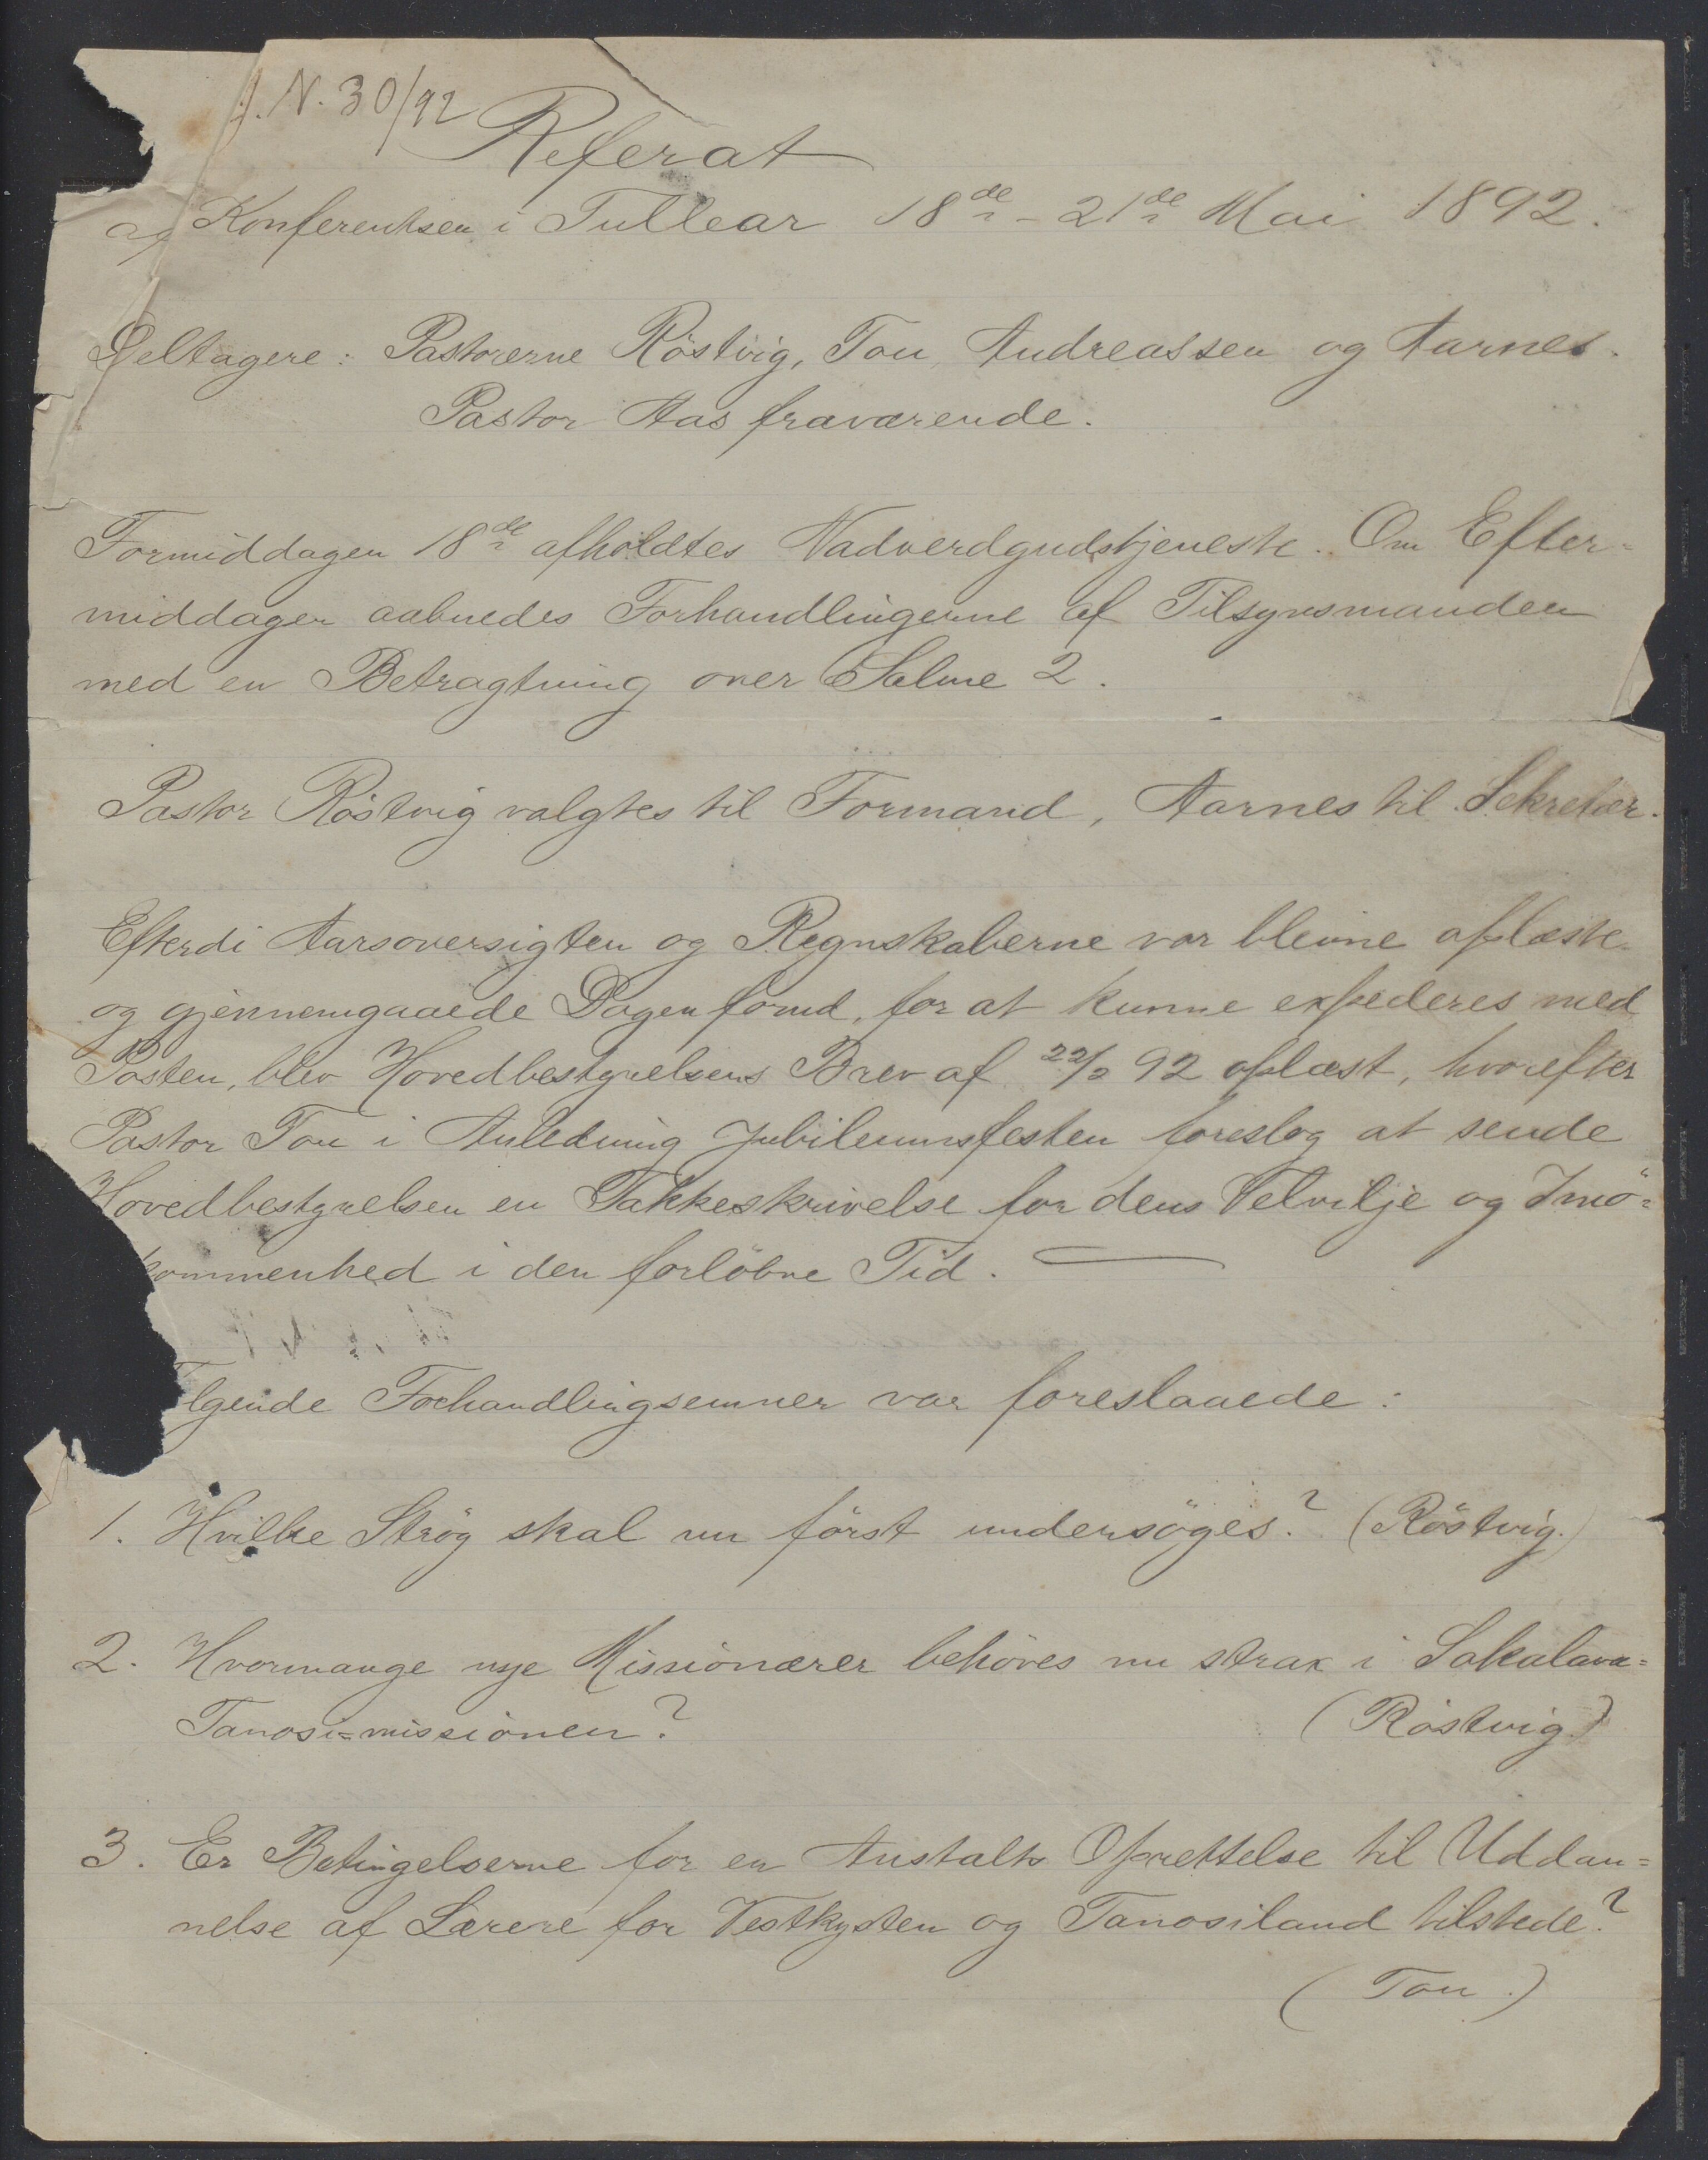 J. N. 30/92
Referat
af Konferentsen i Tullear 18de - 21de Mai 1892.
Deltagere: Pastorerne Röstvig, Tou, Andreassen og Aarnes.
Pastor Aas fraværende.
Formiddagen 18de afholdtes Nadverdgudstjeneste. Om Efter=
middagen aabnedes Forhandlingerne af Tilsynsmanden
med en Betragtning over Salme 2.
Pastor Röstvig valgtes til Formand, Aarnes til Sekretær.
Efterdi Aarsoversigten og Regnskaberne var blevne oplæste
og gjennemgaaede Dagen forud, for at kunne expederes med
Posten, blev Hovedbestyrelsens Brev af 22/2 92 oplæst, hvorefter
Pastor Tou i Anledning Jubileumsfesten foreslog at sende
Hovedbestyrelsen en Takkeskrivelse for dens Velvilje og Imö=
kommenhed i den forløbne Tid.
lgende Forhandlingsemner var foreslaaede:
1. Hvilke Strøg skal nu först undersöges? (Röstvig.)
2. Hvormange nye Missionærer behöves nu strax i Sakalava=
Tanosi=missionen? (Röstvig.)
3. Er Betingelserne for en Anstalts Oprettelse til Uddan=
nelse af Lærere for Vestkysten og Tanosiland tilstede?
(Tou.)